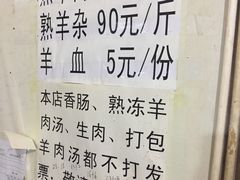 熟羊杂 90元/斤
羊 血 5元/份
本店香肠、熟冻羊
肉汤、生肉、打包
羊肉汤都不打发
票